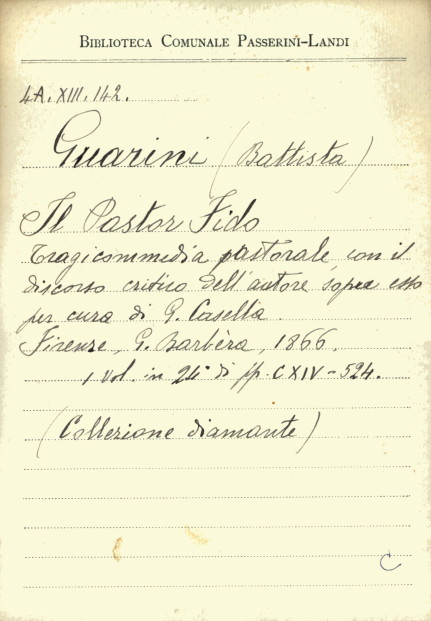 BIBLIOTECA COMUNALE PASSERINI-LANDI
4A.XIII.142.
Guarini (Battista)
Il Pastor Fido
tragicommedia pastorale, con il
discorso critico dell'autore sopra esso
per cura di G. Casella.
Firenze, G. Barbèra, 1866.
1 vol. in 24° di pp. CXIV-524.
(Collezione diamante)
C